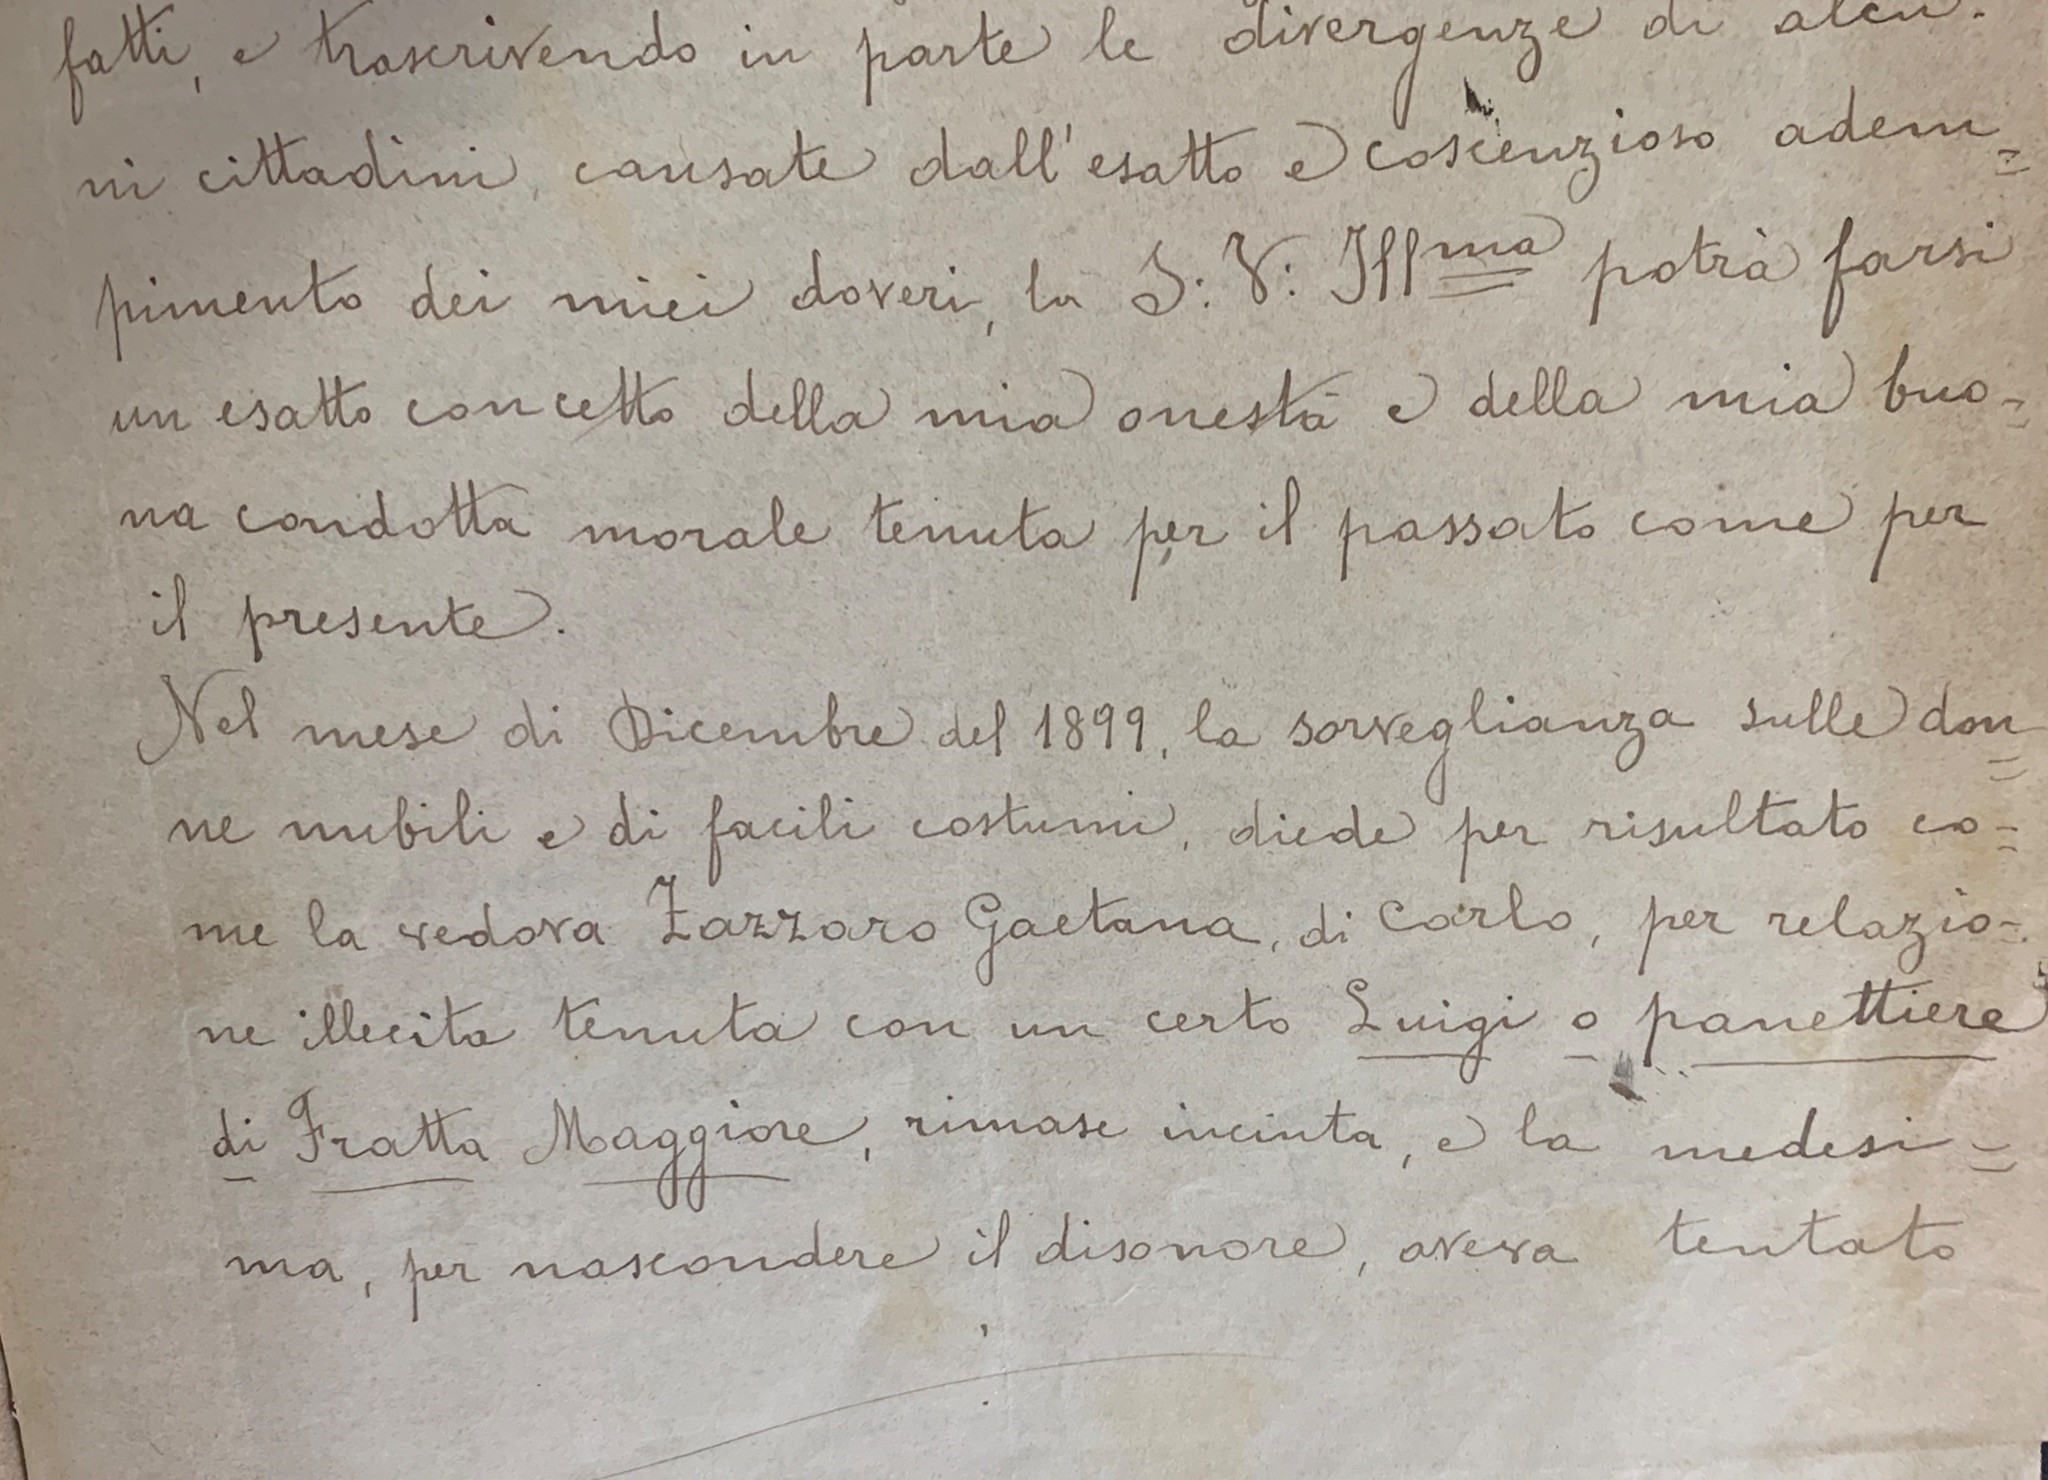 fatti, e trascrivendo in parte le divergenze di alcu-
ni cittadini causate dall'esatto e coscenzioso adem=
pimento dei miei doveri, la S: V: Illma potrà farsi
un esatto concetto della mia onestà e della mia buo=
na condotta morale tenuta per il passato come per
il presente.
Nel mese di Dicembre del 1899, la sorveglianza sulle don=
ne nubili e di facili costumi, diede per risultato co=
me la vedova Zazzaro Gaetana, di Carlo, per relazio=
ne illecita tenuta con un certo Luigi o panettiere
di Fratta Maggiore, rimase incinta, e la medesi=
ma, per nascondere il disonore, aveva tentato